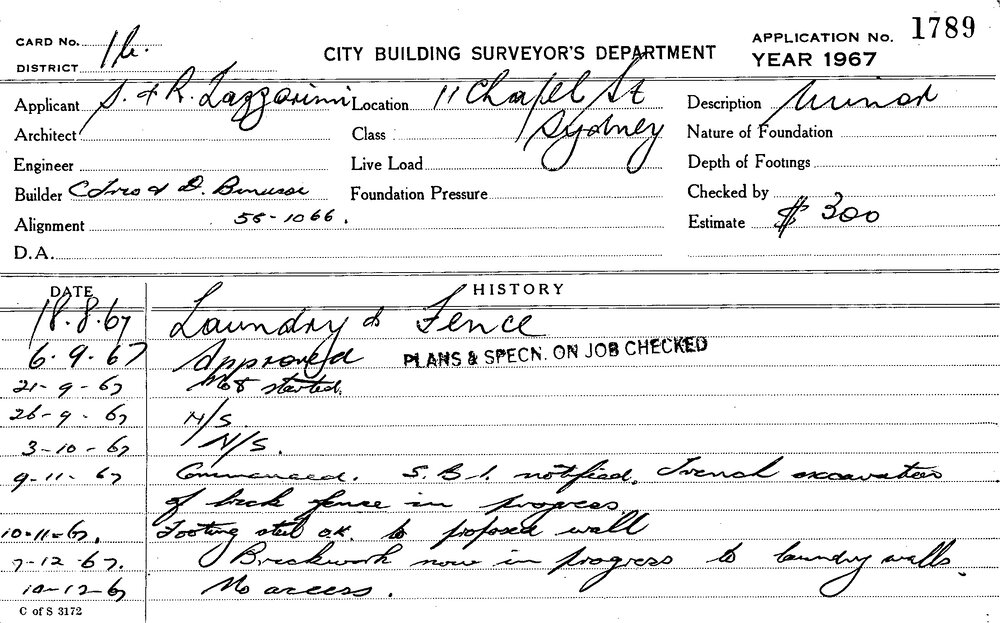 CARD No. 1b.
DISTRICT
CITY BUILDING SURVEYOR'S DEPARTMENT
APPLICATION No. 1789
YEAR 1967
Applicant S. & R. Lazzarini Location 11 Chapel St Description Minor
Architect Class Sydney Nature of Foundation
Engineer Live Load Depth of Footings
Builder & D. Foundation Pressure Checked by
Alignment 58-1066. Estimate $ 300
D.A.
DATE HISTORY
18.8.67 Laundry & Fence
6.9.67 Approved PLANS & SPECN. ON JOB CHECKED
21-9-67 Not started.
26-9-67 N/S.
3-10-67 N/S.
9-11-67 Commenced. S.B.I. notified. Trench excavation
of back fence in progress
10-11-67. Footing steel o.k. to proposed wall
7-12-67. Brickwork now in progress to laundry walls.
No access.
C of S 3172